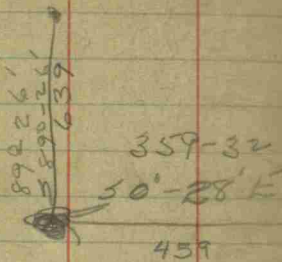 89° 26'
S 89°-26'
639
359-32
S 0°-28' E
459